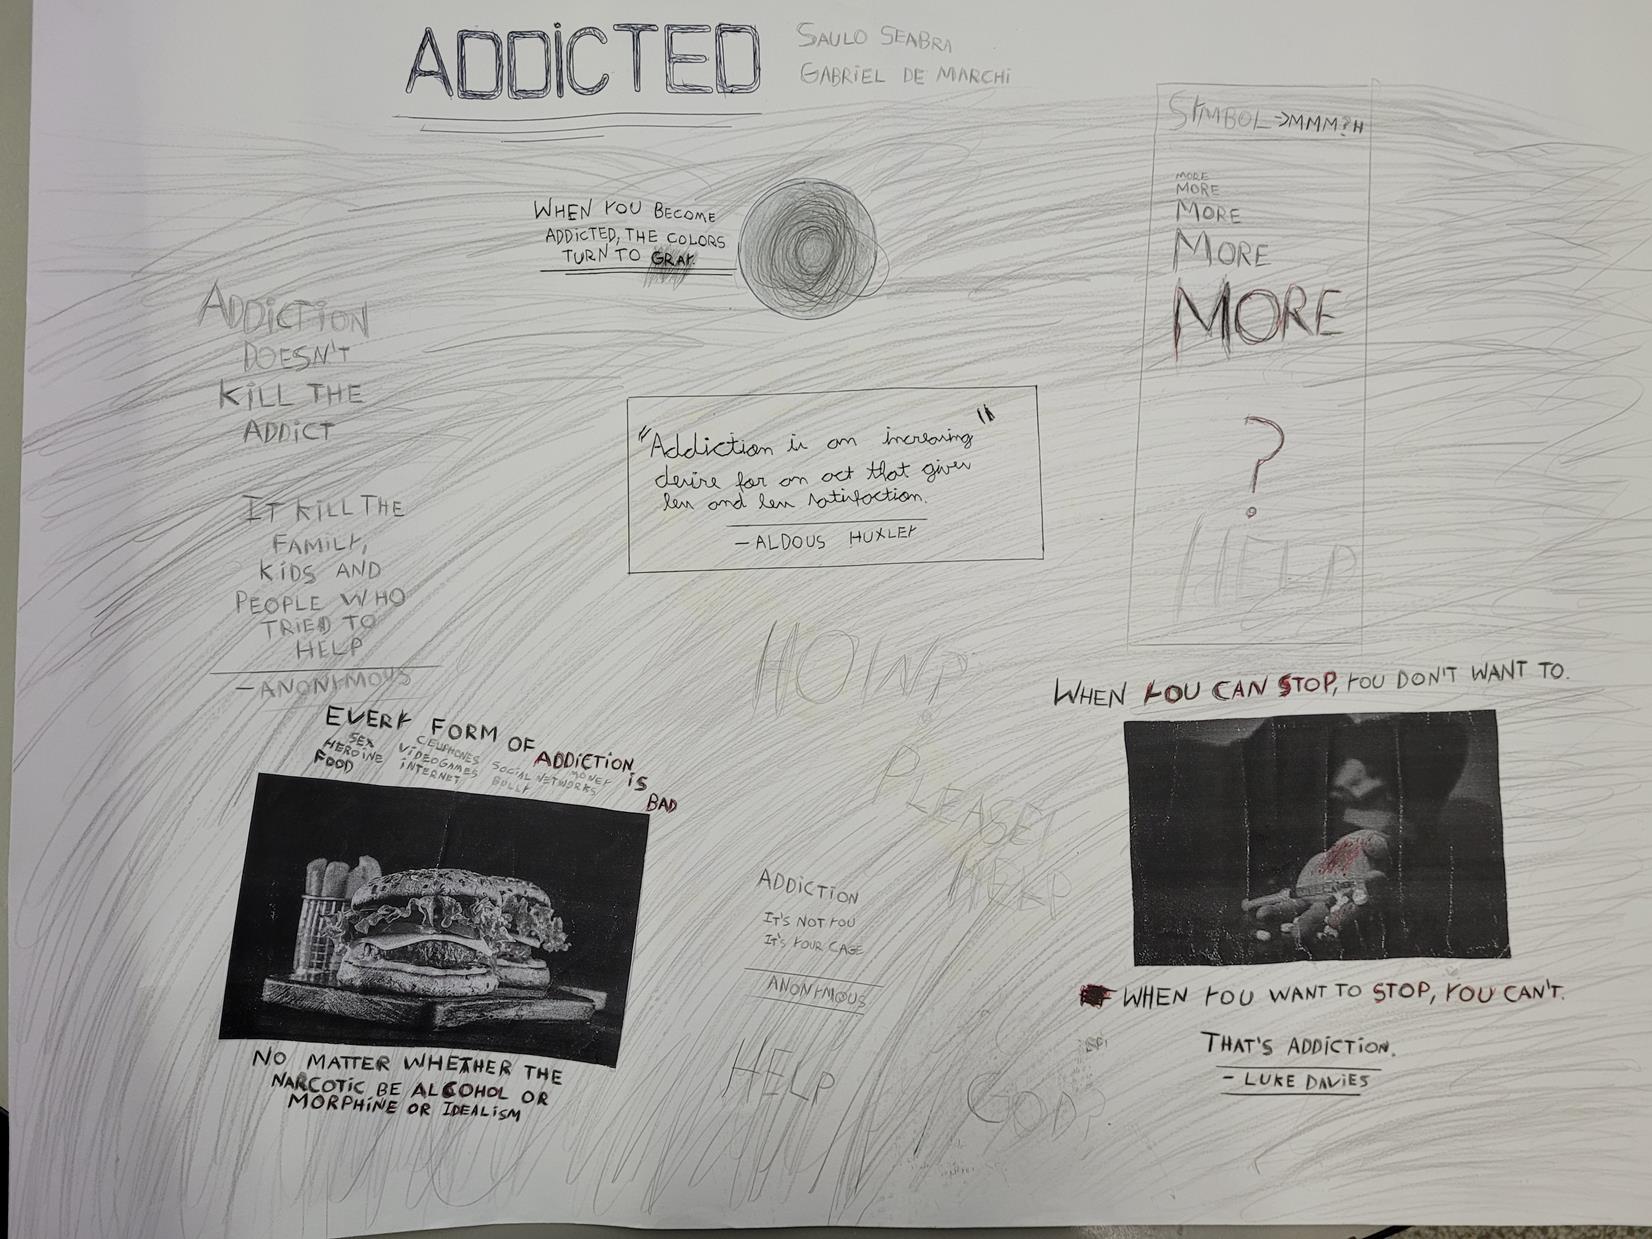 ADDiCTED
SAULO SEABRA
GABRIEL DE MARCHi
WHEN YOU BECOME
ADDiCTED, THE COLORS
TURN TO GRAY.
SYMBOL →MMM?H
MORE
MORE
MORE
MORE
MORE
?
HELP
ADDiCTiON
DOESN'T
KiLL THE
ADDiCT
IT KiLL THE
FAMiLY,
KiDS AND
PEOPLE WHO
TRiED TO
HELP
-ANONYMOUS
"Addiction is an increasing"
desire for an act that gives
less and less satisfaction.
-ALDOUS HUXLEY
PLEASE!
HELP
EVERY FORM OF ADDiCTiON iS BAD
SEX
HEROiNE
FOOD
CELLPHONES
ViDEOGAMES
iNTERNET
MONEY
SOCiAL NETWORKS
BULLY
NO MATTER WHETHER THE
NARCOTiC BE ALCOHOL OR
MORPHiNE OR IDEALiSM
ADDiCTiON
iT'S NOT YOU
iT'S YOUR CAGE
ANONYMOUS
HELP
GOD?
WHEN YOU CAN STOP, YOU DON'T WANT TO.
WHEN YOU WANT TO STOP, YOU CAN'T.
THAT'S ADDiCTiON.
- LUKE DAViES